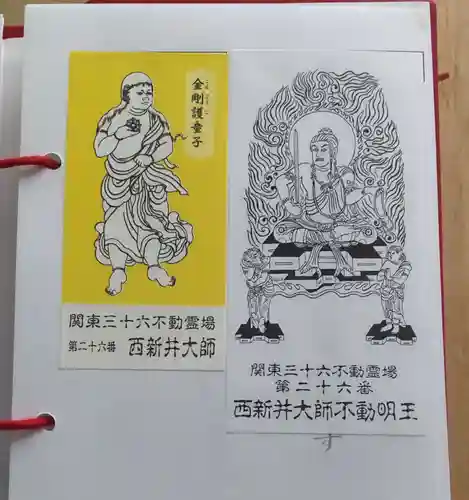 金剛護童子
関東三十六不動霊場
第二十六番 西新井大師
関東三十六不動霊場
第二十六番
西新井大師不動明王